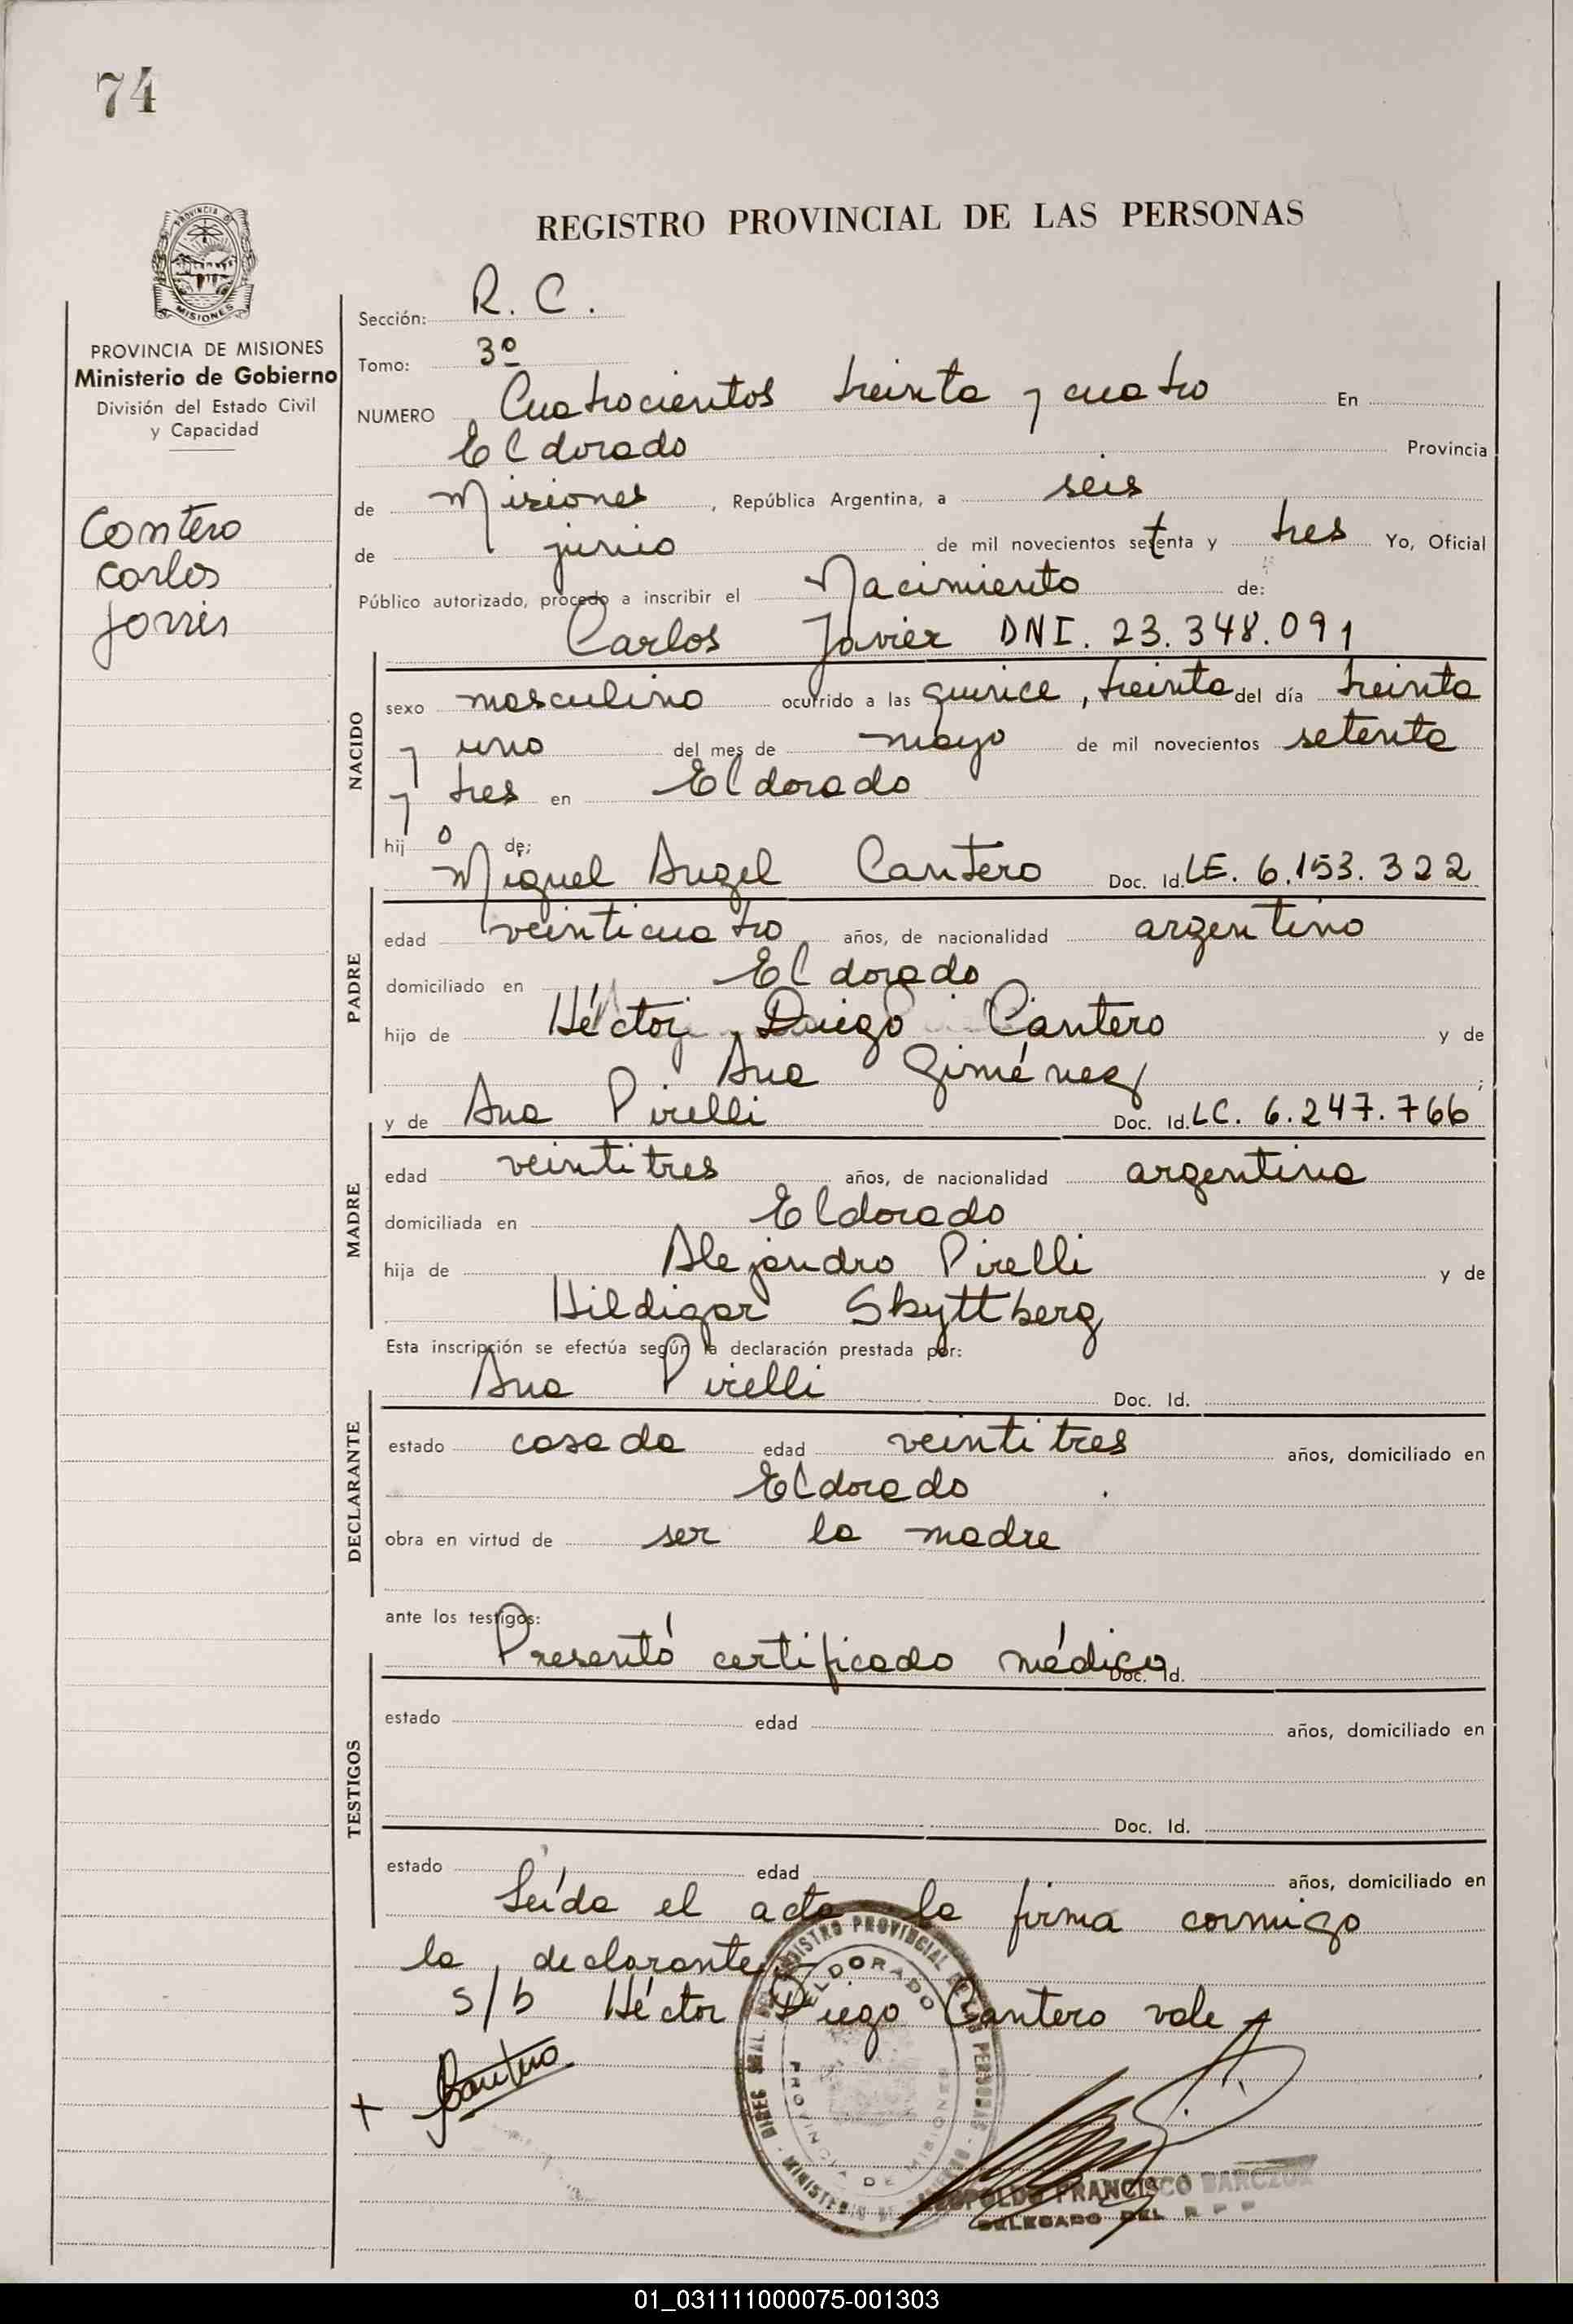 74
PROVINCIA DE
MISIONES
PROVINCIA DE MISIONES
Ministerio de Gobierno
División del Estado Civil
y Capacidad
Cantero
Carlos
Javier
REGISTRO PROVINCIAL DE LAS PERSONAS
Sección: R. C.
Tomo: 3º
NUMERO Cuatrocientos treinta y cuatro En
Eldorado Provincia
de Misiones, República Argentina, a seis
de junio de mil novecientos setenta y tres Yo, Oficial
Público autorizado, procedo a inscribir el Nacimiento de:
Carlos Javier DNI. 23.348.091
NACIDO
sexo masculino ocurrido a las quince, treinta del día treinta
y uno del mes de mayo de mil novecientos setenta
y tres en Eldorado
hijo de:
Miguel Angel Cantero Doc. Id. LE. 6.153.322
PADRE
edad veinticuatro años, de nacionalidad argentino
domiciliado en Eldorado
hijo de Héctor Diego Cantero y de
Ana Giménez;
y de Ana Pirelli Doc. Id. LC. 6.247.766
MADRE
edad veintitres años, de nacionalidad argentina
domiciliada en Eldorado
hija de Alejandro Pirelli y de
Hildigar Skyttberg
Esta inscripción se efectúa según la declaración prestada por:
Ana Pirelli Doc. Id.
DECLARANTE
estado casada edad veintitres años, domiciliado en
Eldorado
obra en virtud de ser la madre
ante los testigos:
Presentó certificado médico Doc. Id.
TESTIGOS
estado edad años, domiciliado en
Doc. Id.
estado edad años, domiciliado en
Leída el acta la firma conmigo
la declarante
s/b Héctor Diego Cantero vale
REGISTRO PROVINCIAL DE LAS PERSONAS
ELDORADO
PROVINCIA DE MISIONES
+ Cantero
LEOPOLDO FRANCISCO BARCZUK
DELEGADO DEL R P P
01_031111000075-001303